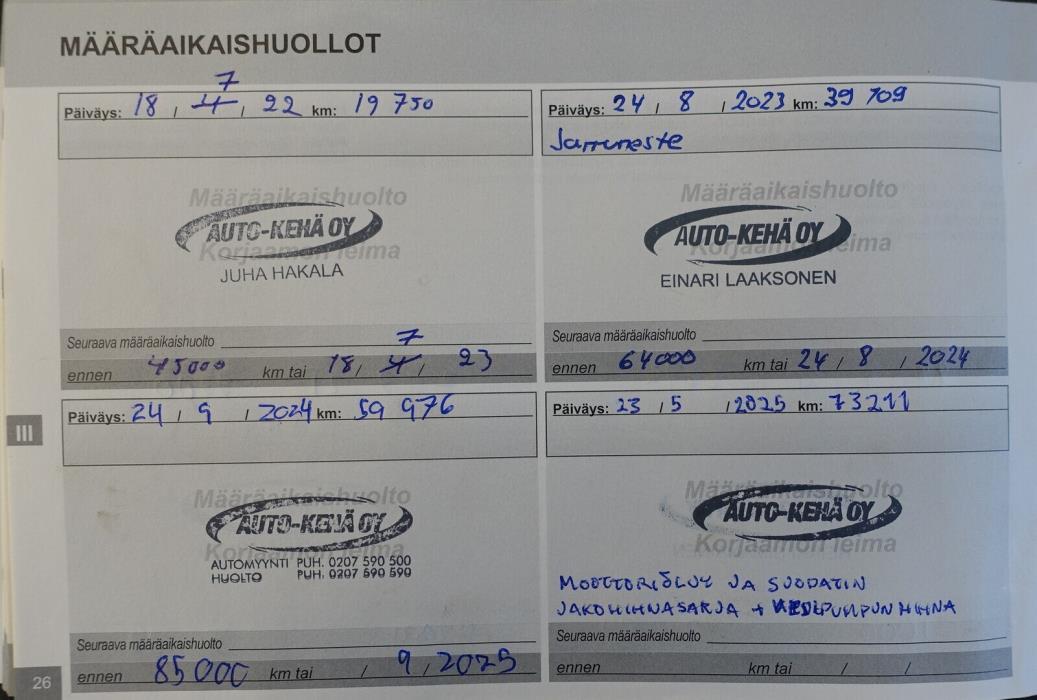 MÄÄRÄAIKAISHUOLLOT
7
Päiväys: 18 / 4 / 22 km: 19 750
Määräaikaishuolto
AUTO-KEHÄ OY
Korjaamon leima
JUHA HAKALA
Seuraava määräaikaishuolto
7
ennen 45000 km tai 18 / 4 / 23
Päiväys: 24 / 8 / 2023 km: 39 709
Jarruneste
Määräaikaishuolto
AUTO-KEHÄ OY
leima
EINARI LAAKSONEN
Seuraava määräaikaishuolto
ennen 64000 km tai 24 / 8 / 2024
Päiväys: 24 / 9 / 2024 km: 59 976
Määräaikaishuolto
AUTO-KEHÄ OY
Korjaamon leima
AUTOMYYNTI PUH. 0207 590 500
HUOLTO PUH. 0207 590 590
Seuraava määräaikaishuolto
ennen 85000 km tai / 9 / 2025
Päiväys: 23 / 5 / 2025 km: 73211
Määräaikaishuolto
AUTO-KEHÄ OY
Korjaamon leima
MOOTTORIÖLJY JA SUODATIN
JAKOHIHNASARJA + VESIPUMPUN HIHNA
Seuraava määräaikaishuolto
ennen km tai / /
III
26